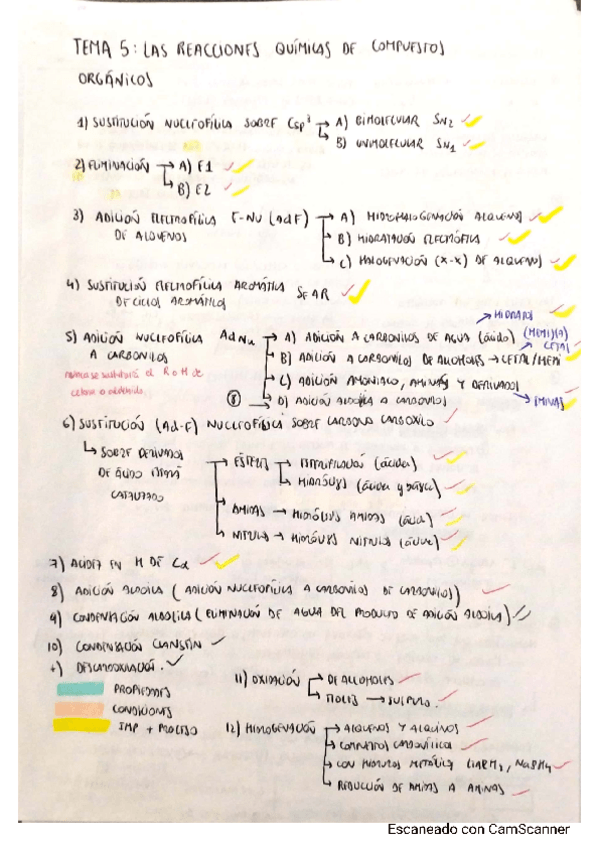 TEMA 5: LAS REACCIONES QUÍMICAS DE COMPUESTOS
ORGÁNICOS
1) SUSTITUCIÓN NUCLEOFÍLICA SOBRE Csp³ → A) BIMOLECULAR SN2
B) UNIMOLECULAR SN1
2) ELIMINACIÓN → A) E1
B) E2
3) ADICIÓN ELECTROFÍLICA E-NU (AdE) → A) HIDROHALOGENACIÓN ALQUENOS
DE ALQUENOS
B) HIDRATACIÓN ELECTROFÍLICA
C) HALOGENACIÓN (X-X) DE ALQUENOS
4) SUSTITUCIÓN ELECTROFÍLICA AROMÁTICA SEAR
DE CICLOS AROMÁTICOS
HIDRATOS
5) ADICIÓN NUCLEOFÍLICA AdNu → A) ADICIÓN A CARBONILOS DE AGUA (ácido)
A CARBONILOS
CETAL
B) ADICIÓN A CARBONILOS DE ALCOHOLES → CETAL/HEMI
nunca se sustituirá el R o H de
cetona o aldehído
C) ADICIÓN AMONIACO, AMINAS Y DERIVADOS
IMINAS
⑧ → D) ADICIÓN ALDÓLICA A CARBONILOS
6) SUSTITUCIÓN (Ad-E) NUCLEOFÍLICA SOBRE CARBONO CARBOXILO
SOBRE DERIVADOS
DE ÁCIDO
CATALIZADO
ÉSTERES → ESTERIFICACIÓN (ácida)
HIDRÓLISIS (ácida y básica)
AMIDAS → HIDRÓLISIS AMIDAS (ácida)
NITRILOS → HIDRÓLISIS NITRILOS (ácida)
7) ACIDEZ EN H DE Cα
8) ADICIÓN ALDÓLICA (ADICIÓN NUCLEOFÍLICA A CARBONILOS DE CARBONILOS)
9) CONDENSACIÓN ALDÓLICA (ELIMINACIÓN DE AGUA DEL PRODUCTO DE ADICIÓN ALDÓLICA)
10) CONDENSACIÓN CLAISEN
+) DESCARBOXILACIÓN.
11) OXIDACIÓN → DE ALCOHOLES
TIOLES → SULFURO.
PROPIEDADES
CONDICIONES
IMP + PROCESO
12) HIDROGENACIÓN → ALQUENOS Y ALQUINOS
COMPUESTOS CARBONÍLICOS
CON HIDRUROS METÁLICOS LiAlH4, NaBH4
REDUCCIÓN DE AMIDAS A AMINAS
Escaneado con CamScanner